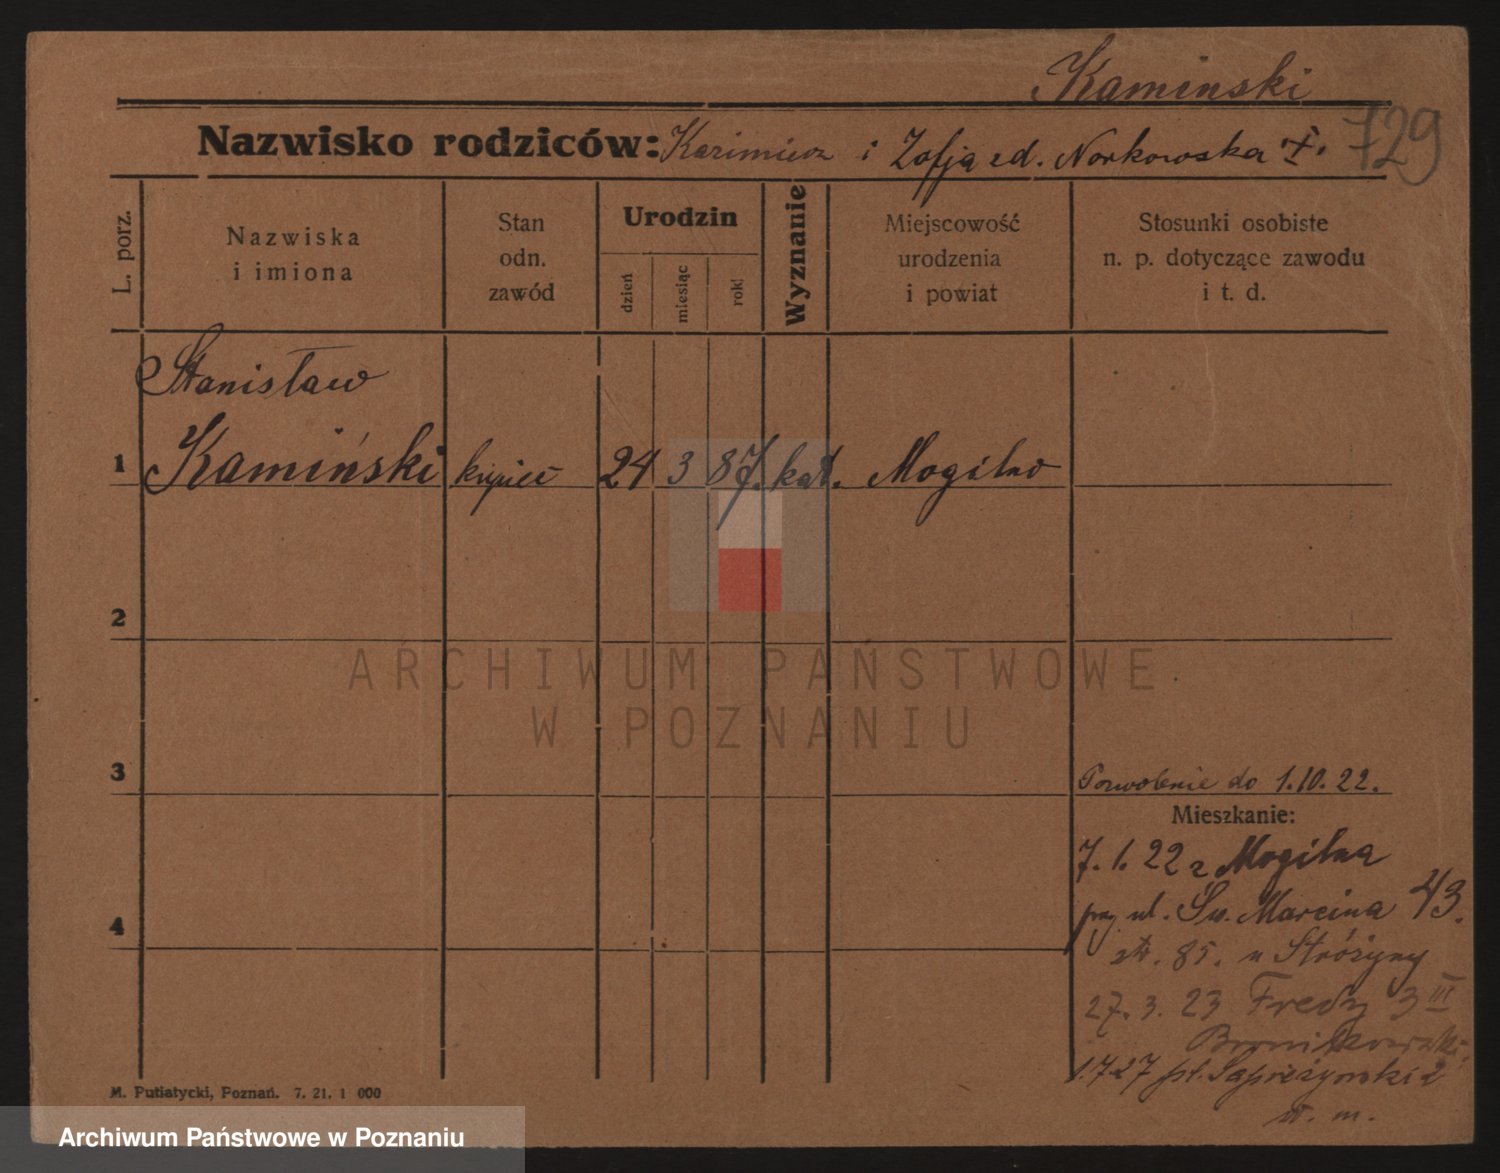 Kaminski
Nazwisko rodziców: Kazimierz i Zofja zd. Norkowska
729
L. porz.
Nazwiska
i imiona
Stan
odn.
zawód
Urodzin
dzień
miesiąc
rok
Wyznanie
Miejscowość
urodzenia
i powiat
Stosunki osobiste
n. p. dotyczące zawodu
i t. d.
Stanisław
1 Kamiński kupiec 24 3 87. kat. Mogilno
2
ARCHIWUM PAŃSTWOWE
W POZNANIU
3
Pozwolenie do 1.10.22.
Mieszkanie:
7.1.22 z Mogilna
przy ul. Św. Marcina 43.
4
85. u Stróżyny
27.3.23 Fredry 3 III
Bronikowski
1.7.27 pl. Sapieżyński 2
M. Putiatycki, Poznań. 7. 21. 1 000
Archiwum Państwowe w Poznaniu